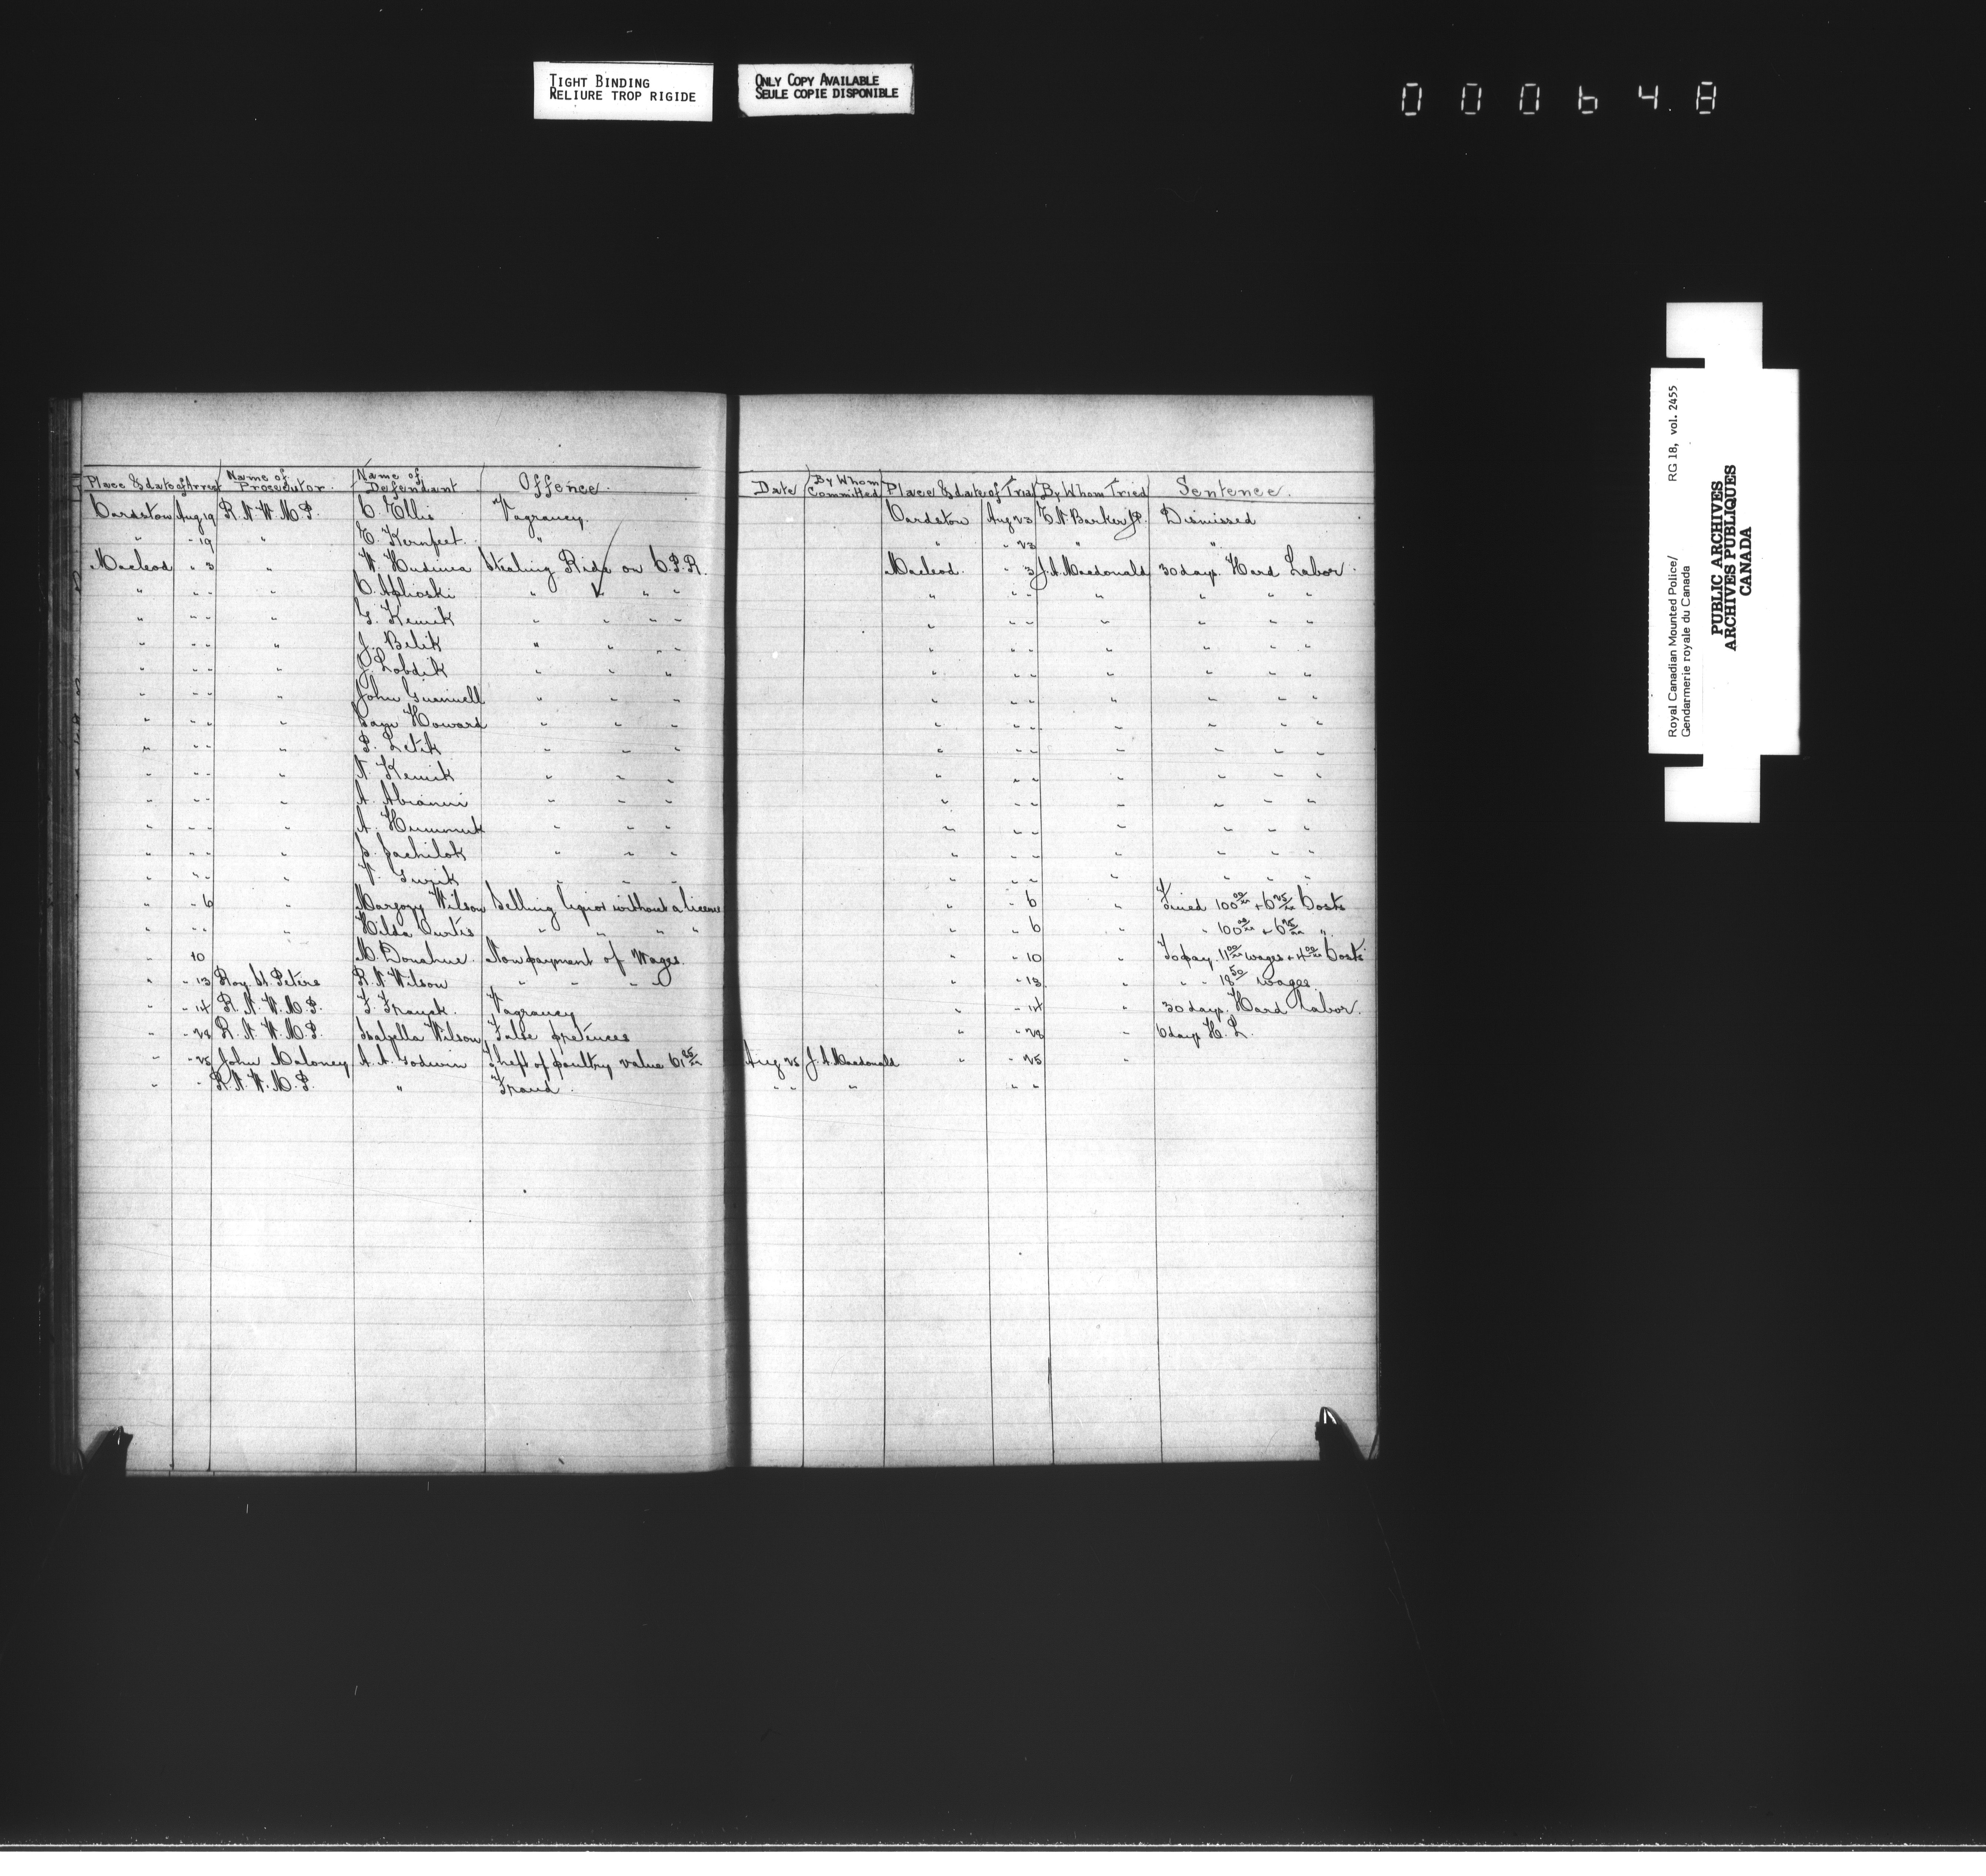 TIGHT BINDING
RELIURE TROP RIGIDE
ONLY COPY AVAILABLE
SEULE COPIE DISPONIBLE
000648
Place & date of Arrest Name of Prosecutor. Name of Defendant Offence. Date By Whom Committed Place & date of Trial By Whom Tried Sentence.
Cardston Aug 19 R.N.W.M.P. C. Ellis Vagrancy. Cardston Aug 23 J.P. Dismissed
" " 19 " E. Kernfeet. " " " 23 " "
Macleod " 3 " W. Hudima Stealing Ride on C.P.R. Macleod. " 3 J.A. Macdonald 30 days. Hard Labor.
" " " " C. " " " " " " " " " " "
" " " " G. Kemik " " " " " " " " " " "
" " " " J. Belik " " " " " " " " " " "
" " " " J. Lobdik " " " " " " " " " "
" " " " John " " " " " " " " " "
" " " " Sam Howard " " " " " " " " " "
" " " " P. Letik " " " " " " " " " "
" " " " N. Kemik " " " " " " " " " "
" " " " A. " " " " " " " " " "
" " " " A. " " " " " " " " " "
" " " " " " " " " " " " " "
" " " " " " " " " " " " "
" " 6 " Margory Wilson Selling liquor without a license " " 6 " Fined 100 00/xx + 6 25/xx Costs
" " " " Hilda Curtis " " " " " " 6 " " 100 00/xx + 6 25/xx "
" 10 M. Donahue. Non payment of Wages. " " 10 " To pay 11 00/xx wages + 4 00/xx Costs
" " 13 Roy St. Peters R.N. Wilson " " " " " 13 " " " 18 50/ wages.
" " 14 R.N.W.M.P. F. Franck. Vagrancy " " 14 " 30 days. Hard Labor.
" " 28 R.N.W.M.P. Isabella Wilson False pretences " " 28 " 6 days H.L.
" " 25 John Maloney A.A. Godwin Theft of poultry value 61 25/xx Aug 25 J.A. Macdonald " " 25 "
" " R.N.W.M.P. " Fraud. " " " " "
Royal Canadian Mounted Police/ RG 18, vol. 2455
Gendarmerie royale du Canada
PUBLIC ARCHIVES
ARCHIVES PUBLIQUES
CANADA